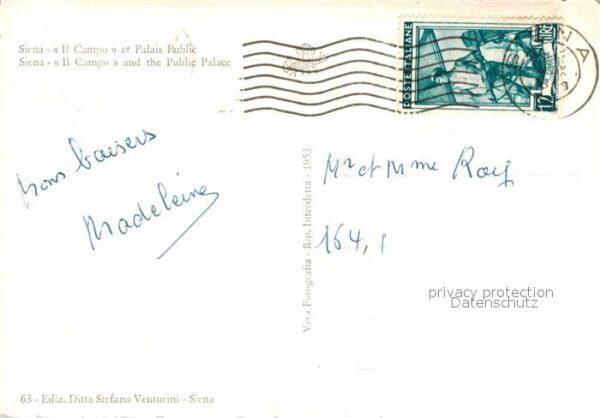 Siena - « Il Campo » et Palais Public
Siena - « Il Campo » and the Public Palace
POSTE ITALIANE
LIRE
12
NA
Bons baisers
Madeleine
Vera Fotografia - Rip. Interdetta - 1953
Mr et Mme Roy
164,
privacy protection
Datenschutz
63 - Ediz. Ditta Stefano Venturini - Siena